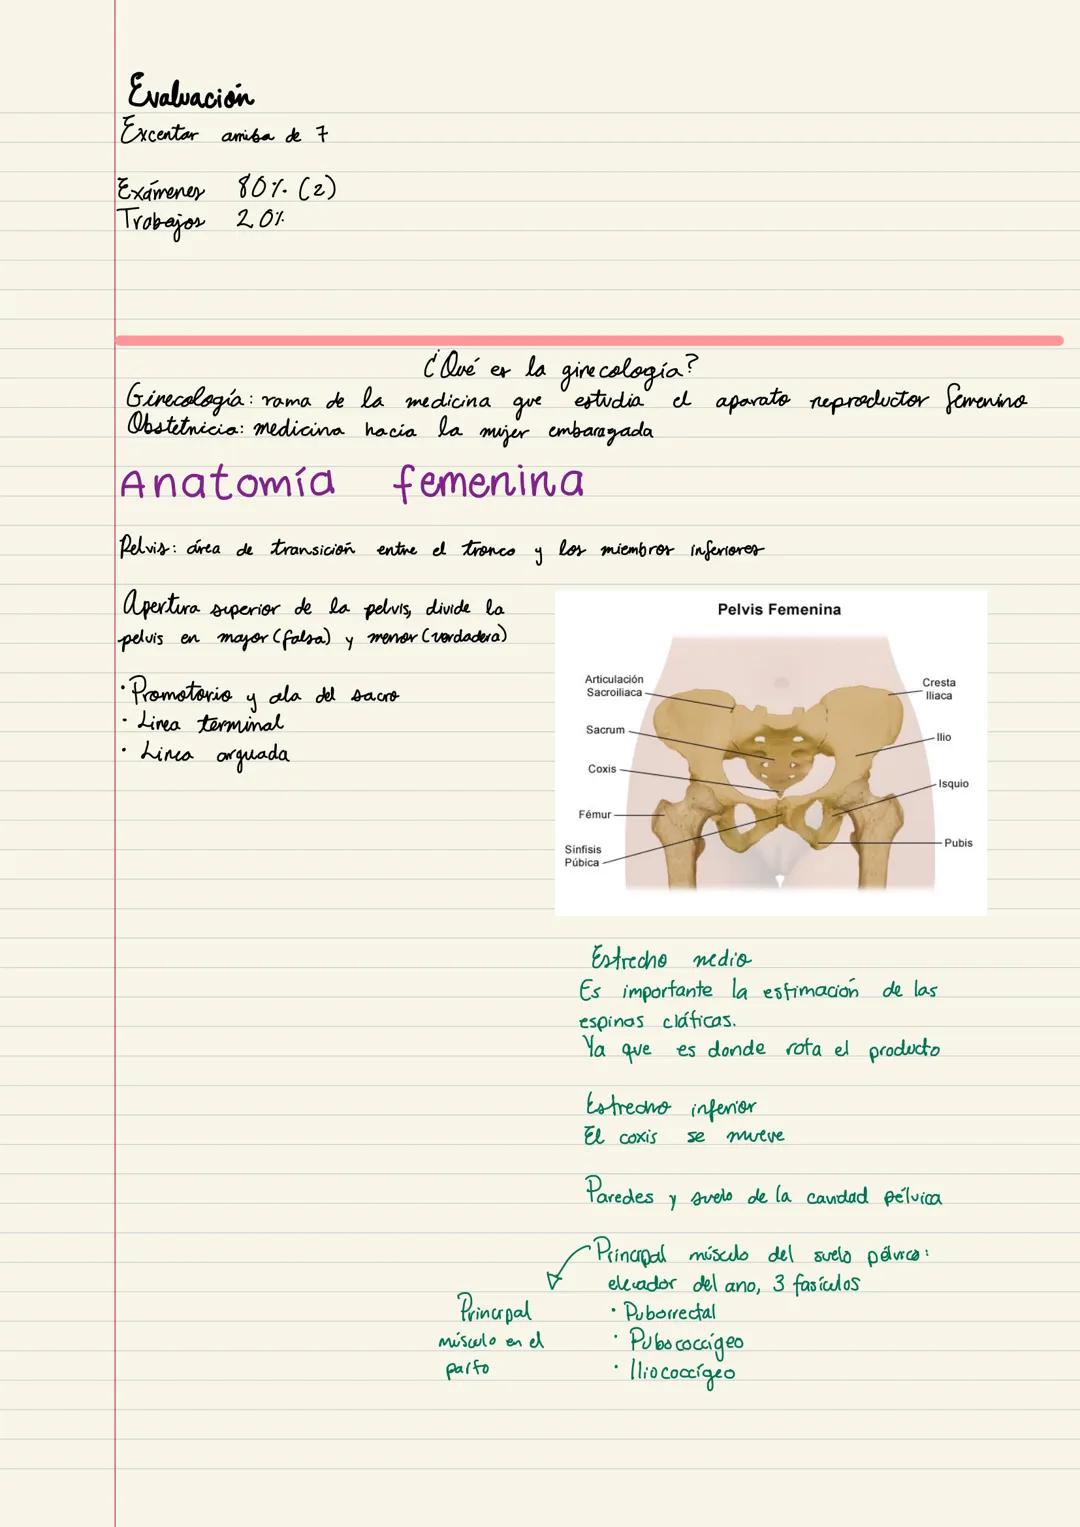 Evaluación
Excentar arriba de 7
Exámenes 80% (2)
Trabajos 20%
¿Qué es la ginecología?
Ginecología: rama de la medicina que estudia el aparato reproductor femenino
Obstetricia: medicina hacia la mujer embaragada
Anatomía femenina
Pelvis: área de transición entre el tronco y los miembros inferiores
Apertura superior de la pelvis, divide la
pelvis en mayor (falsa) y menor (verdadera)
· Promotorio y ala del sacro
· Linea terminal
· Linea arquada
Pelvis Femenina
Articulación
Sacroiliaca
Sacrum
Coxis
Fémur
Sínfisis
Púbica
Cresta
Iliaca
Ilio
Isquio
Pubis
Estrecho medio
Es importante la estimación de las
espinas cláticas.
Ya que es donde rota el producto
Estrecho inferior
El coxis se mueve
Paredes y suelo de la cavidad pélvica
Principal músculo del suelo pélvico:
elevador del ano, 3 fasículos
· Puborrectal
· Pubococcígeo
· Iliococcígeo
Principal
músculo en el
parto